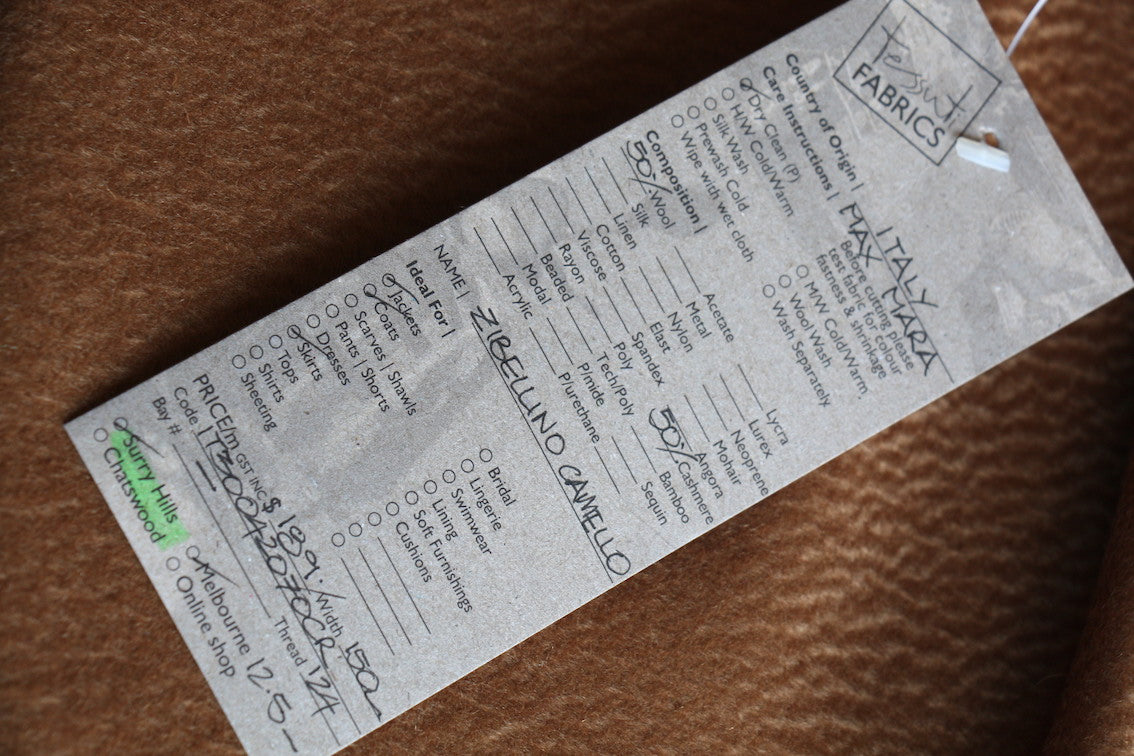 Tessuti
FABRICS
Country of Origin | ITALY
MAX MARA
Care Instructions | Before cutting please
test fabric for colour
fastness & shrinkage
Dry Clean (P)
H/W Cold/Warm
Silk Wash
Prewash Cold
Wipe with wet cloth
M/W Cold/Warm
Wool Wash
Wash Separately
Composition |
50% Wool
Silk
Linen
Cotton
Viscose
Rayon
Beaded
Modal
Acrylic
Acetate
Metal
Nylon
Elast
Spandex
Poly
Tech/Poly
P/mide
P/urethane
Lycra
Lurex
Neoprene
Mohair
Angora
50% Cashmere
Bamboo
Sequin
NAME | ZIBELLINO CAMELLO
Ideal For |
Jackets
Coats
Scarves | Shawls
Pants | Shorts
Dresses
Skirts
Tops
Shirts
Sheeting
Bridal
Lingerie
Swimwear
Lining
Soft Furnishings
Cushions
PRICE/m GST INC $ 189. /Width 150
Code IT30042070CR Thread 124
Bay #
Surry Hills
Chatswood
Melbourne 12.5
Online shop